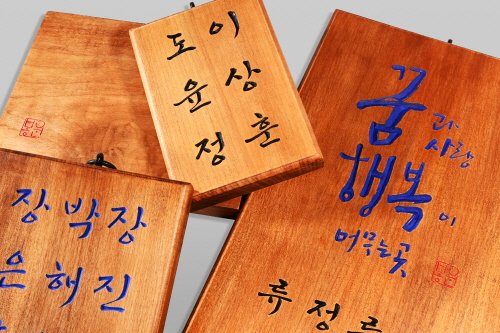 이상훈
도윤정
장진
박해
장은
꿈과 사랑
행복이
머무는곳
류 정